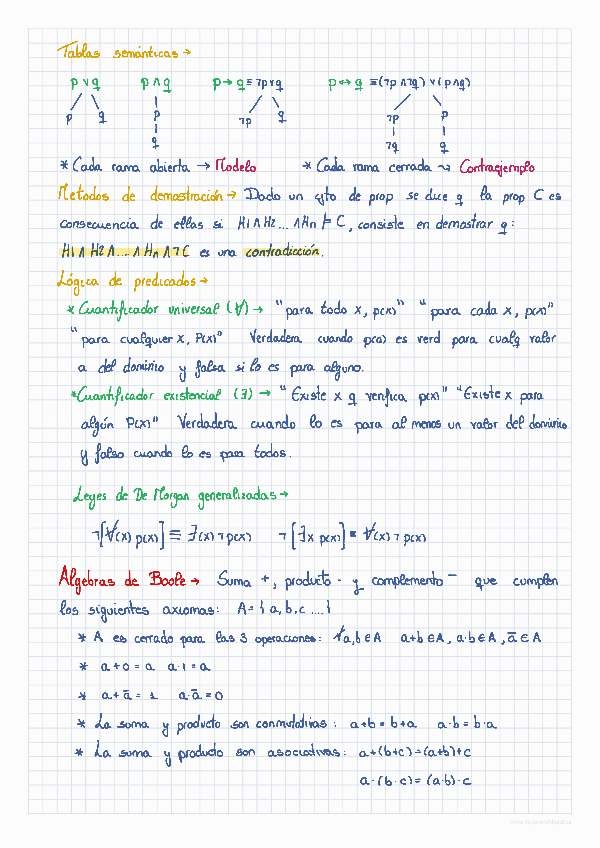 Tablas semánticas →
p ∨ q p ∧ q p → q ≡ ¬p ∨ q p ↔ q ≡ (¬p ∧ ¬q) ∨ (p ∧ q)
p q p ¬p q ¬p p
q ¬q q
* Cada rama abierta → Modelo * Cada rama cerrada ↝ Contraejemplo
Metodos de demostración → Dado un cjto de prop se dice q la prop C es
consecuencia de ellas si H1 ∧ H2 ... ∧ Hn ⊨ C, consiste en demostrar q:
H1 ∧ H2 ∧ ... ∧ Hn ∧ ¬C es una contradicción.
Lógica de predicados →
* Cuantificador universal (∀) → "para todo x, p(x)" "para cada x, p(x)"
"para cualquier x, P(x)" Verdadera cuando p(a) es verd para cualq valor
a del dominio y falsa si lo es para alguno.
* Cuantificador existencial (∃) → "Existe x q verifica p(x)" "Existe x para
algún P(x)" Verdadera cuando lo es para al menos un valor del dominio
y falso cuando lo es para todos.
Leyes de De Morgan generalizadas →
¬[∀(x) p(x)] ≡ ∃(x) ¬p(x) ¬[∃x p(x)] ≡ ∀(x) ¬p(x)
Álgebras de Boole → Suma +, producto · y complemento ‾ que cumplen
los siguientes axiomas: A = { a, b, c .... }
* A es cerrado para las 3 operaciones: ∀a, b ∈ A a+b ∈ A, a·b ∈ A, ā ∈ A
* a + 0 = a a·1 = a
* a + ā = 1 a·ā = 0
* La suma y producto son conmutativas: a+b = b+a a·b = b·a
* La suma y producto son asociativas: a+(b+c) = (a+b)+c
a·(b·c) = (a·b)·c